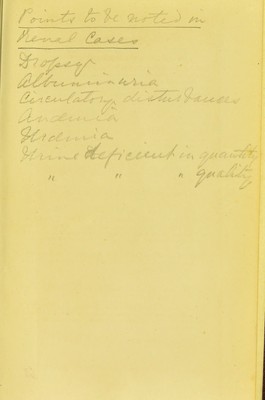 Points to be noted in
Renal Cases
Dropsy
Albuminuria
Circulatory disturbances
Anaemia
Uraemia
Urine deficient in quantity
" " " quality